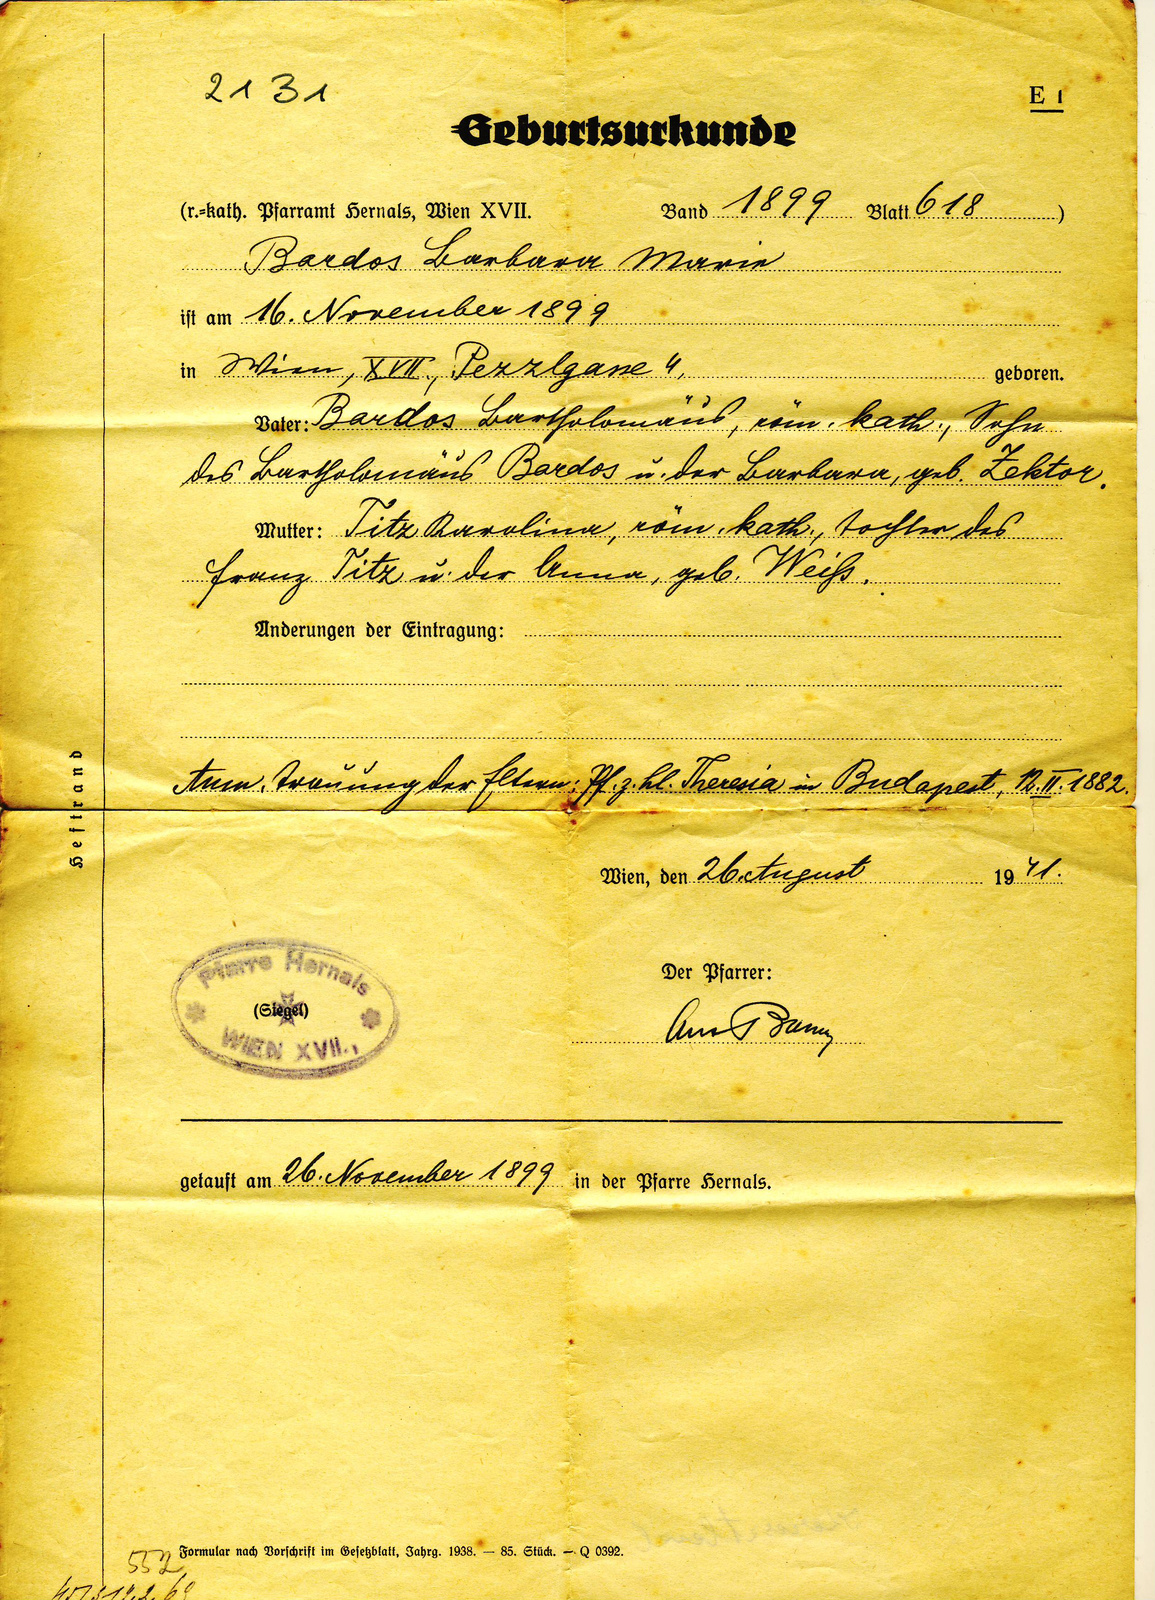 2131
E 1
Geburtsurkunde
(r.-kath. Pfarramt Hernals, Wien XVII. Band 1899 Blatt 618 )
Bardos Barbara Marie
ist am 16. November 1899
in Wien, XVII., Pezzlgasse 4, geboren.
Vater: Bardos Bartholomäus, röm. kath., Sohn
des Bartholomäus Bardos u. der Barbara, geb. Zektor.
Mutter: Titz Karolina, röm. kath., Tochter des
Franz Titz u. der Anna, geb. Weiß.
Änderungen der Eintragung:
Anm. Trauung der Eltern: Pf. z. hl. Theresia in Budapest, 12.II.1882.
Heftrand
Wien, den 26. August 1941.
Pfarre Hernals
(Siegel)
WIEN XVII.,
Der Pfarrer:
getauft am 26. November 1899 in der Pfarre Hernals.
Formular nach Vorschrift im Gesetzblatt, Jahrg. 1938. — 85. Stück. — Q 0392.
552